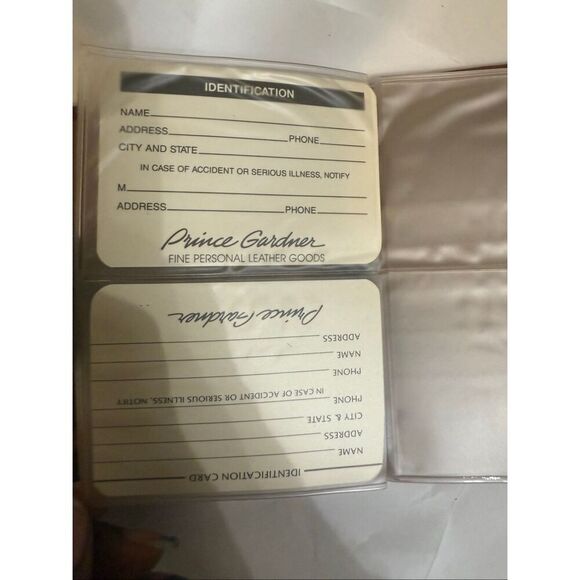 IDENTIFICATION
NAME
ADDRESS PHONE
CITY AND STATE
IN CASE OF ACCIDENT OR SERIOUS ILLNESS, NOTIFY
M
ADDRESS PHONE
Prince Gardner
FINE PERSONAL LEATHER GOODS
IDENTIFICATION CARD
NAME
ADDRESS
CITY & STATE
PHONE
IN CASE OF ACCIDENT OR SERIOUS ILLNESS, NOTIFY
PHONE
NAME
ADDRESS
Prince Gardner